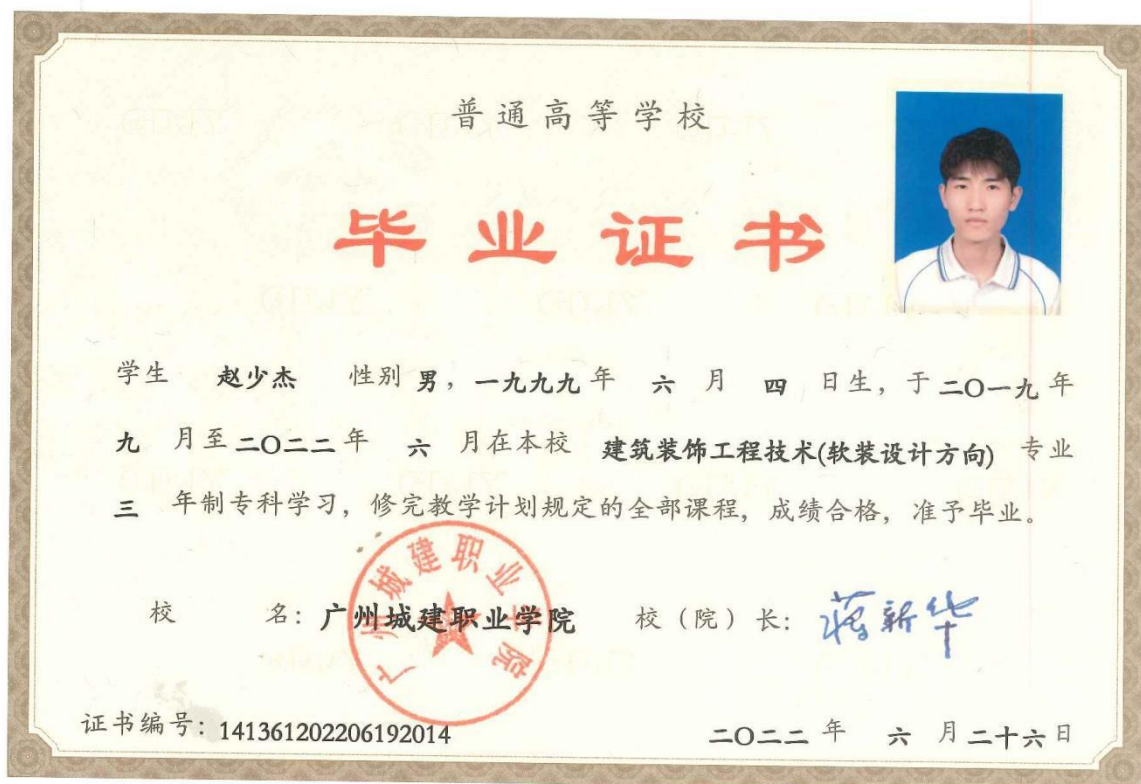 普通高等学校
毕业证书
学生 赵少杰 性别 男，一九九九 年 六 月 四 日生，于 二〇一九 年
九 月至 二〇二二 年 六 月在本校 建筑装饰工程技术(软装设计方向) 专业
三 年制专科学习，修完教学计划规定的全部课程，成绩合格，准予毕业。
广州城建职业学院
校 名：广州城建职业学院 校（院）长：蒋新华
证书编号：141361202206192014 二〇二二 年 六 月 二十六 日